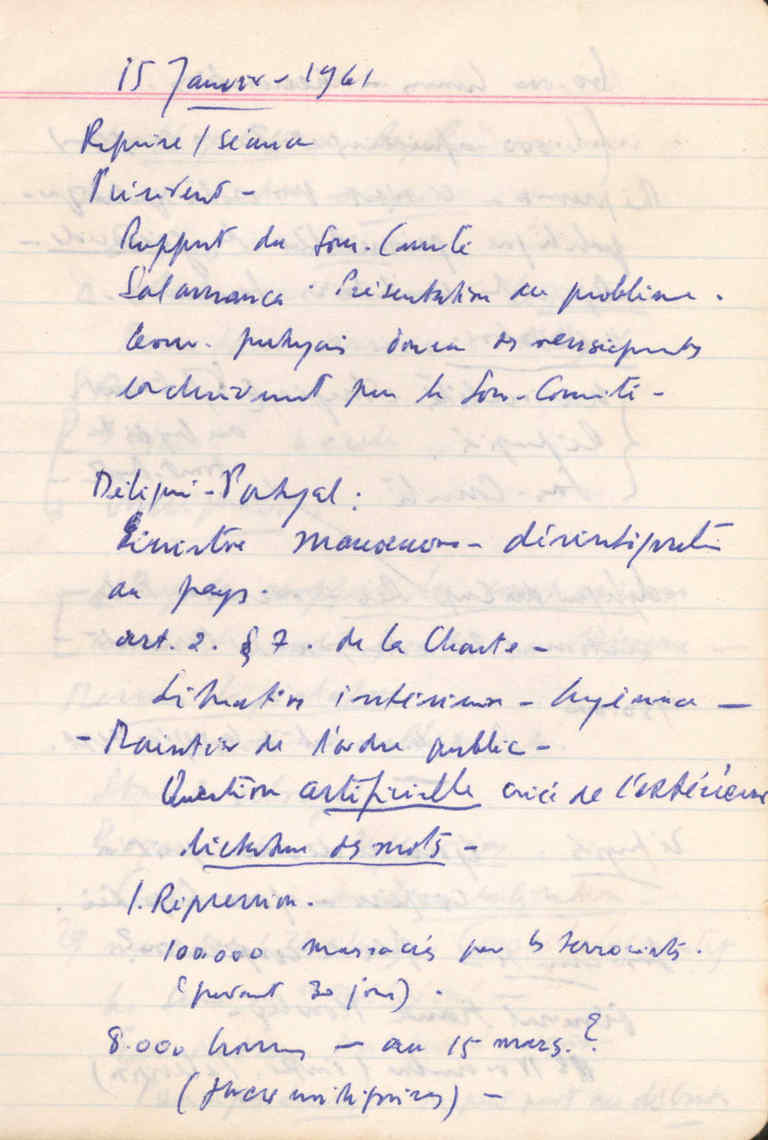 15 Janvier - 1961
Reprise / Séance
Président -
Rapport du Sous-Comité
Salamanca : Présentation du problème.
Gouv. portugais donna des renseignements
exclusivement par le Sous-Comité -
Délégué - Portugal :
Sinistre manoeuvre - désintégration
du pays.
art. 2. § 7. de la Charte -
Situation intérieure - Angleterre -
- Maintien de l'ordre public -
Question artificielle créée de l'extérieur
dictature des mots -
1. Répression.
100.000 massacrés par les terroristes.
(pendant 30 jours).
8.000 hommes - au 15 mars.?
(force militaires) -